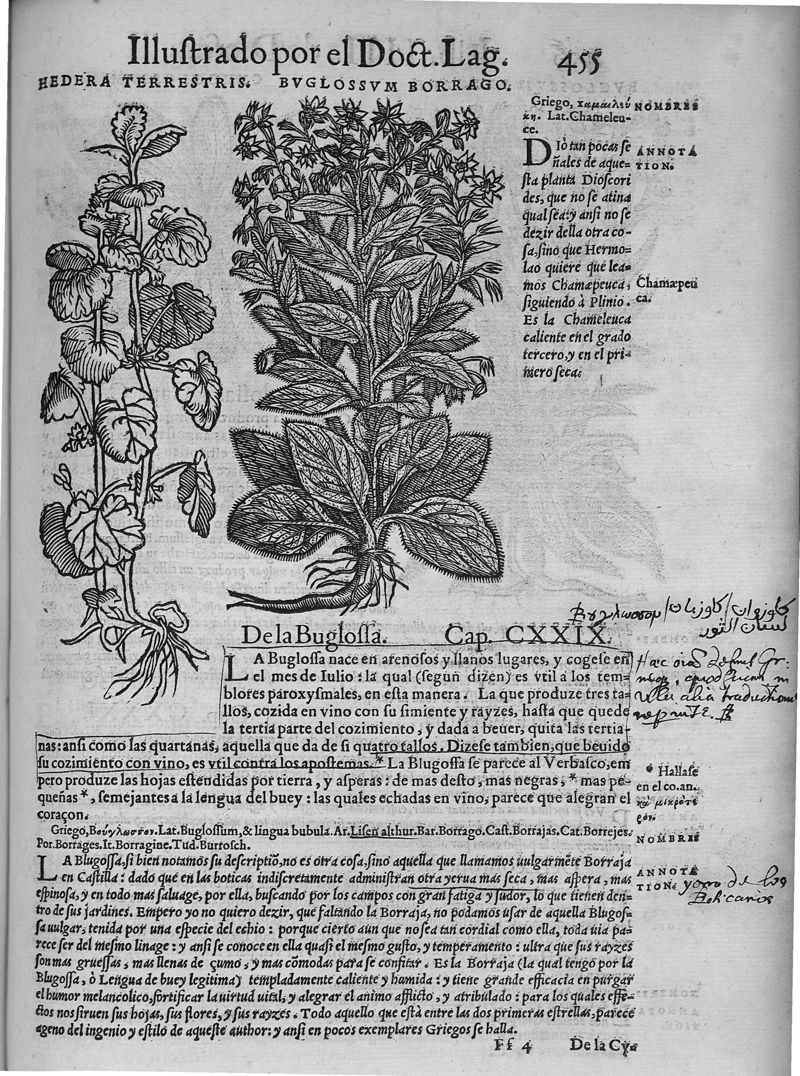 Illuſtrado por el Doct. Lag. 455
HEDERA TERRESTRIS. BVGLOSSVM BORRAGO.
Griego, χαμαιλεύ
κη. Lat. Chameleu-
ce.
NOMBRES
DIò tan pocas ſe
ñales de aque-
ſta planta Dioſcori
des, que no ſe atina
qual ſea: y anſi no ſe
dezir della otra co-
ſa, ſino que Hermo-
lao quiere que lea-
mos Chamæpeuca,
ſiguiendo à Plinio.
Es la Chameleuca
caliente en el grado
tercero, y en el pri-
mero ſeca.
ANNOTA
TION.
Chamæpeu
ca.
Βουγλωσσον / كاوزبان / كاوزوان
لسان الثور
De la Bugloſſa. Cap. CXXIX.
LA Bugloſſa nace en arenoſos y llanos lugares, y cogeſe en
el mes de Iulio: la qual (ſegun dizen) es vtil a los tem-
blores paroxyſmales, en eſta manera. La que produze tres ta-
llos, cozida en vino con ſu ſimiente y rayzes, haſta que quede
la tertia parte del cozimiento, y dada a beuer, quita las tertia-
nas: anſi como las quartanas, aquella que da de ſi quatro tallos. Dizeſe tambien, que beuido
ſu cozimiento con vino, es vtil contra los apoſtemas. * La Blugoſſa ſe parece al Verbaſco, em
pero produze las hojas eſtendidas por tierra, y aſperas: de mas deſto, mas negras, * mas pe-
queñas *, ſemejantes a la lengua del buey: las quales echadas en vino, parece que alegran el
coraçon.
* Hallaſe
en el co. an.
καὶ μικρότε
ρον.
Griego, Βούγλωσσον. Lat. Bugloſſum, & lingua bubula. Ar. Liſen althur. Bar. Borrago. Caſt. Borrajas. Cat. Borrejes.
Por. Borrages. It. Borragine. Tud. Burroſch.
NOMBRES
LA Blugoſſa, ſi bien notamos ſu deſcriptiõ, no es otra coſa, ſino aquella que llamamos uulgarmẽte Borraja
en Caſtilla: dado que en las boticas indiſcretamente adminiſtran otra yerua mas ſeca, mas aſpera, mas
eſpinoſa, y en todo mas ſaluage, por ella, buſcando por los campos con gran fatiga y ſudor, lo que tienen den-
tro de ſus jardines. Empero yo no quiero dezir, que faltando la Borraja, no podamos uſar de aquella Blugoſ-
ſa uulgar, tenida por una eſpecie del echio: porque cierto aun que no ſea tan cordial como ella, toda uia pa-
rece ſer del meſmo linage: y anſi ſe conoce en ella quaſi el meſmo guſto, y temperamento: ultra que ſus rayzes
ſon mas grueſſas, mas llenas de çumo, y mas cõmodas para ſe confitar. Es la Borraja (la qual tengo por la
Blugoſſa, ò Lengua de buey legitima) templadamente caliente y humida: y tiene grande efficacia en purgar
el humor melancolico, fortificar la uirtud uital, y alegrar el animo afflicto, y atribulado: para los quales effe-
ctos nos ſiruen ſus hojas, ſus flores, y ſus rayzes. Todo aquello que eſtà entre las dos primeras eſtrellas, parece
ageno del ingenio y eſtilo de aqueſte author: y anſi en pocos exemplares Griegos ſe halla.
ANNOTA
TION.
yerro de los
Boticarios
Ff 4 De la Cy-